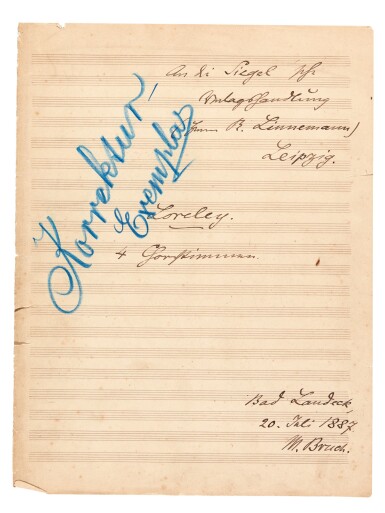 An die Siegel'sche
Verlagshandlung
(Herrn R. Linnemann)
Leipzig.
Korrektur!
Exemplar
Loreley.
4 Chorstimmen.
Bad Landeck,
20. Juli 1887
M. Bruch.